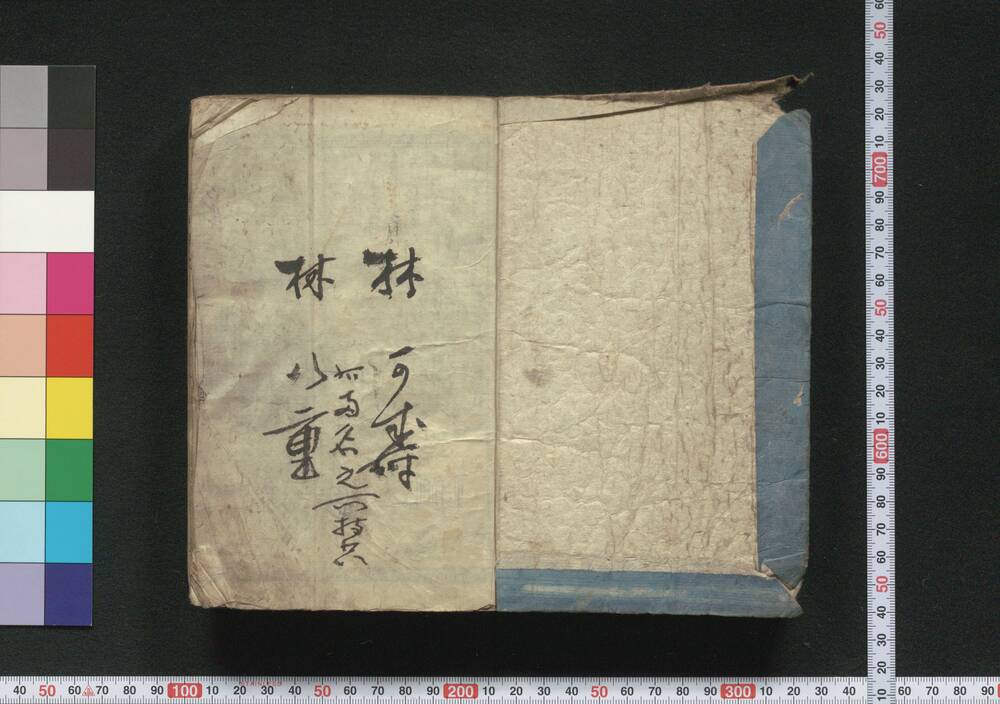 林 可壽
両名之所持
林 重
60 50 40 30 20 10 700 90 80 70 60 50 40 30 20 10 600 90 80 70 60 50 40 30 20 10
40 50 60 70 80 90 100 10 20 30 40 50 60 70 80 90 200 10 20 30 40 50 60 70 80 90 300 10 20 30 40 60 70 80 90